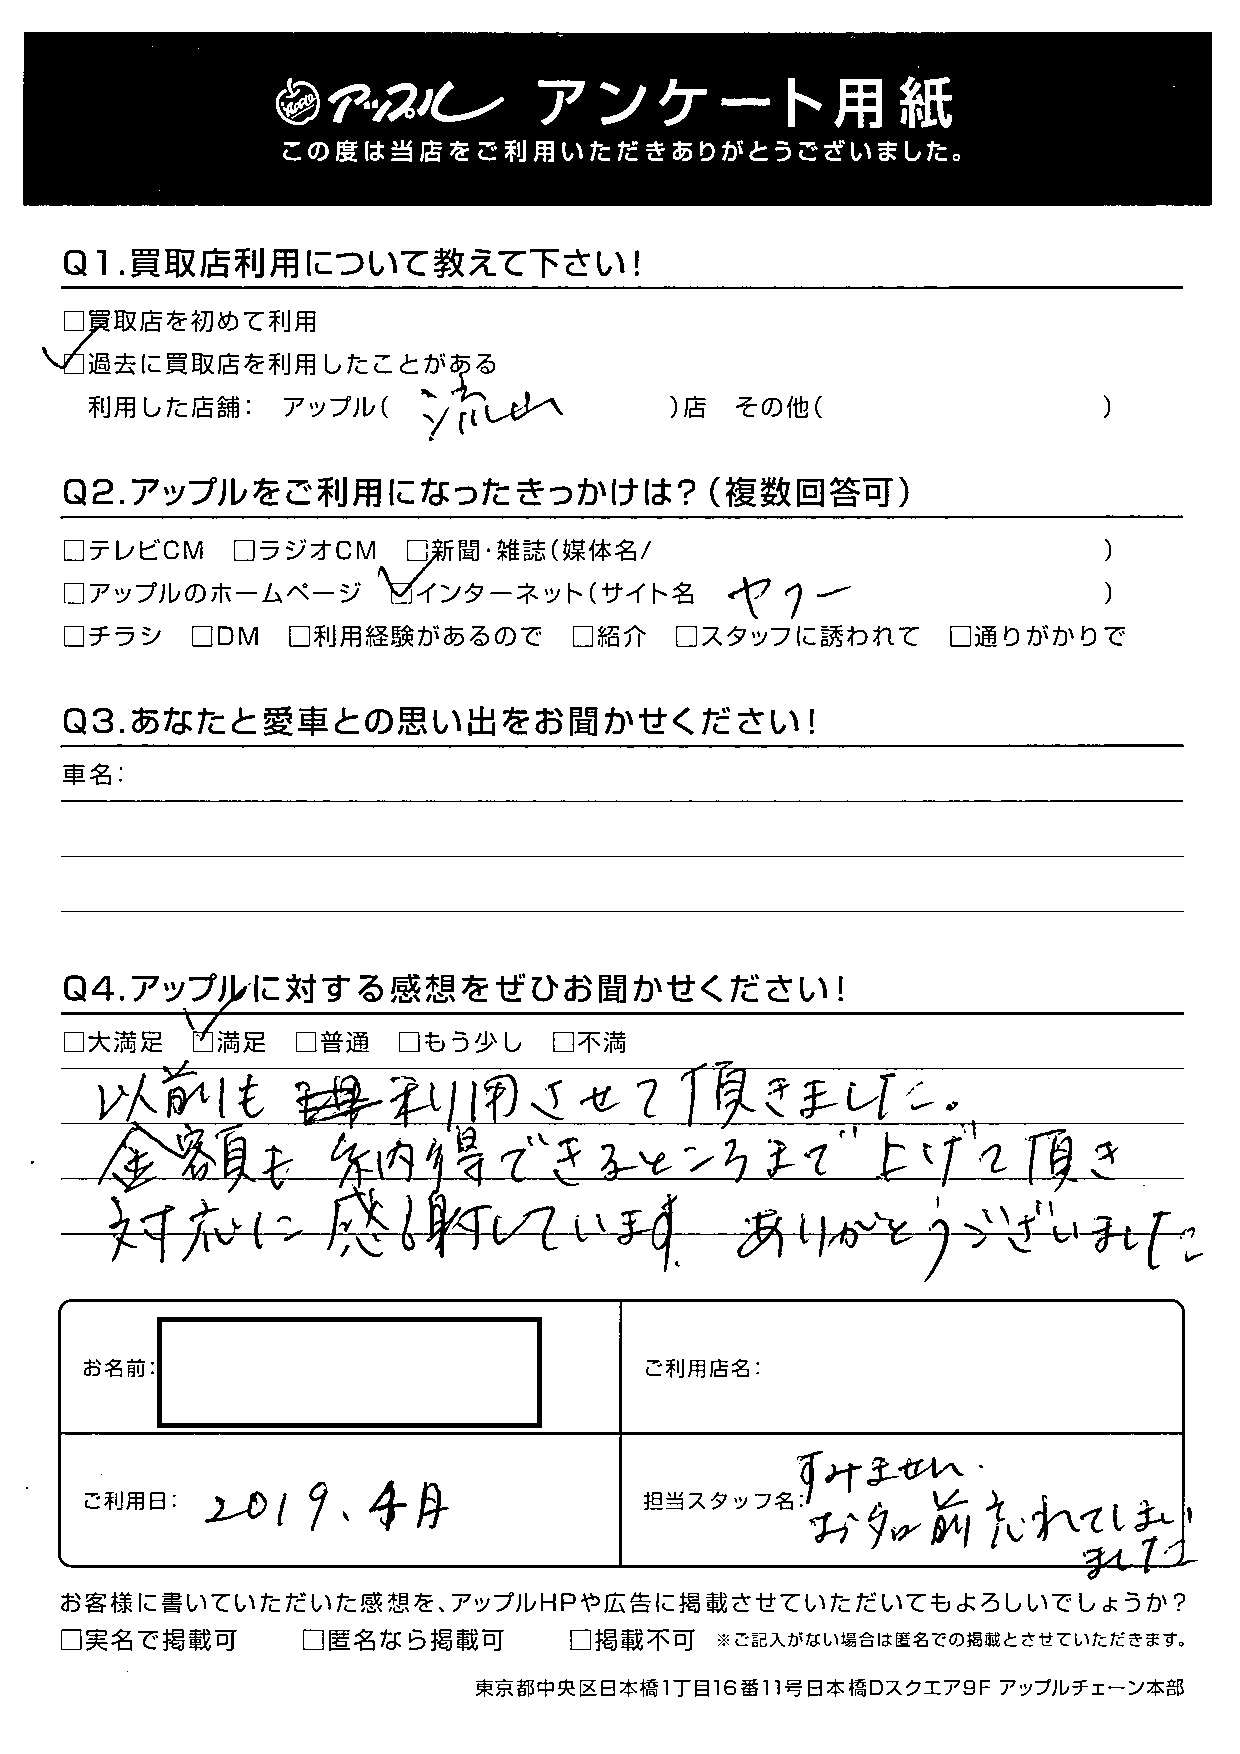 アップル アンケート用紙
この度は当店をご利用いただきありがとうございました。
Q1.買取店利用について教えて下さい!
□買取店を初めて利用
☑過去に買取店を利用したことがある
利用した店舗: アップル( 流山 )店 その他( )
Q2.アップルをご利用になったきっかけは?(複数回答可)
□テレビCM □ラジオCM □新聞・雑誌(媒体名/ )
□アップルのホームページ ☑インターネット(サイト名 ヤフー )
□チラシ □DM □利用経験があるので □紹介 □スタッフに誘われて □通りがかりで
Q3.あなたと愛車との思い出をお聞かせください!
車名:
Q4.アップルに対する感想をぜひお聞かせください!
□大満足 ☑満足 □普通 □もう少し □不満
以前も 利用させて頂きました。
金額も 納得できるところまで上げて頂き
対応に感謝しています。ありがとうございました
お名前: ご利用店名:
ご利用日: 2019、4月 担当スタッフ名: すみません.
お名前忘れてしまい
ました
お客様に書いていただいた感想を、アップルHPや広告に掲載させていただいてもよろしいでしょうか?
□実名で掲載可 □匿名なら掲載可 □掲載不可 ※ご記入がない場合は匿名での掲載とさせていただきます。
東京都中央区日本橋1丁目16番11号日本橋Dスクエア9F アップルチェーン本部